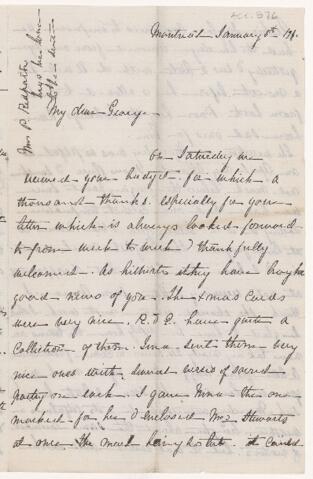 Montreal January 8th
Mrs. P. Redpath
says her love
to the dear
My dear George
On Saturday we
received your budget for which a
thousand thanks, especially for your
letter which is always looked forward
to from week to week & thankfully
welcomed. As hitherto they have brought
good news of you. The Xmas Cards
were very nice. R. & P. have quite a
collection of them. Inna sent them very
nice ones with several verses of sacred
poetry on each. I gave Inna the one
marked for her & enclosed Mrs Stewarts
at once. The mail being so late it could